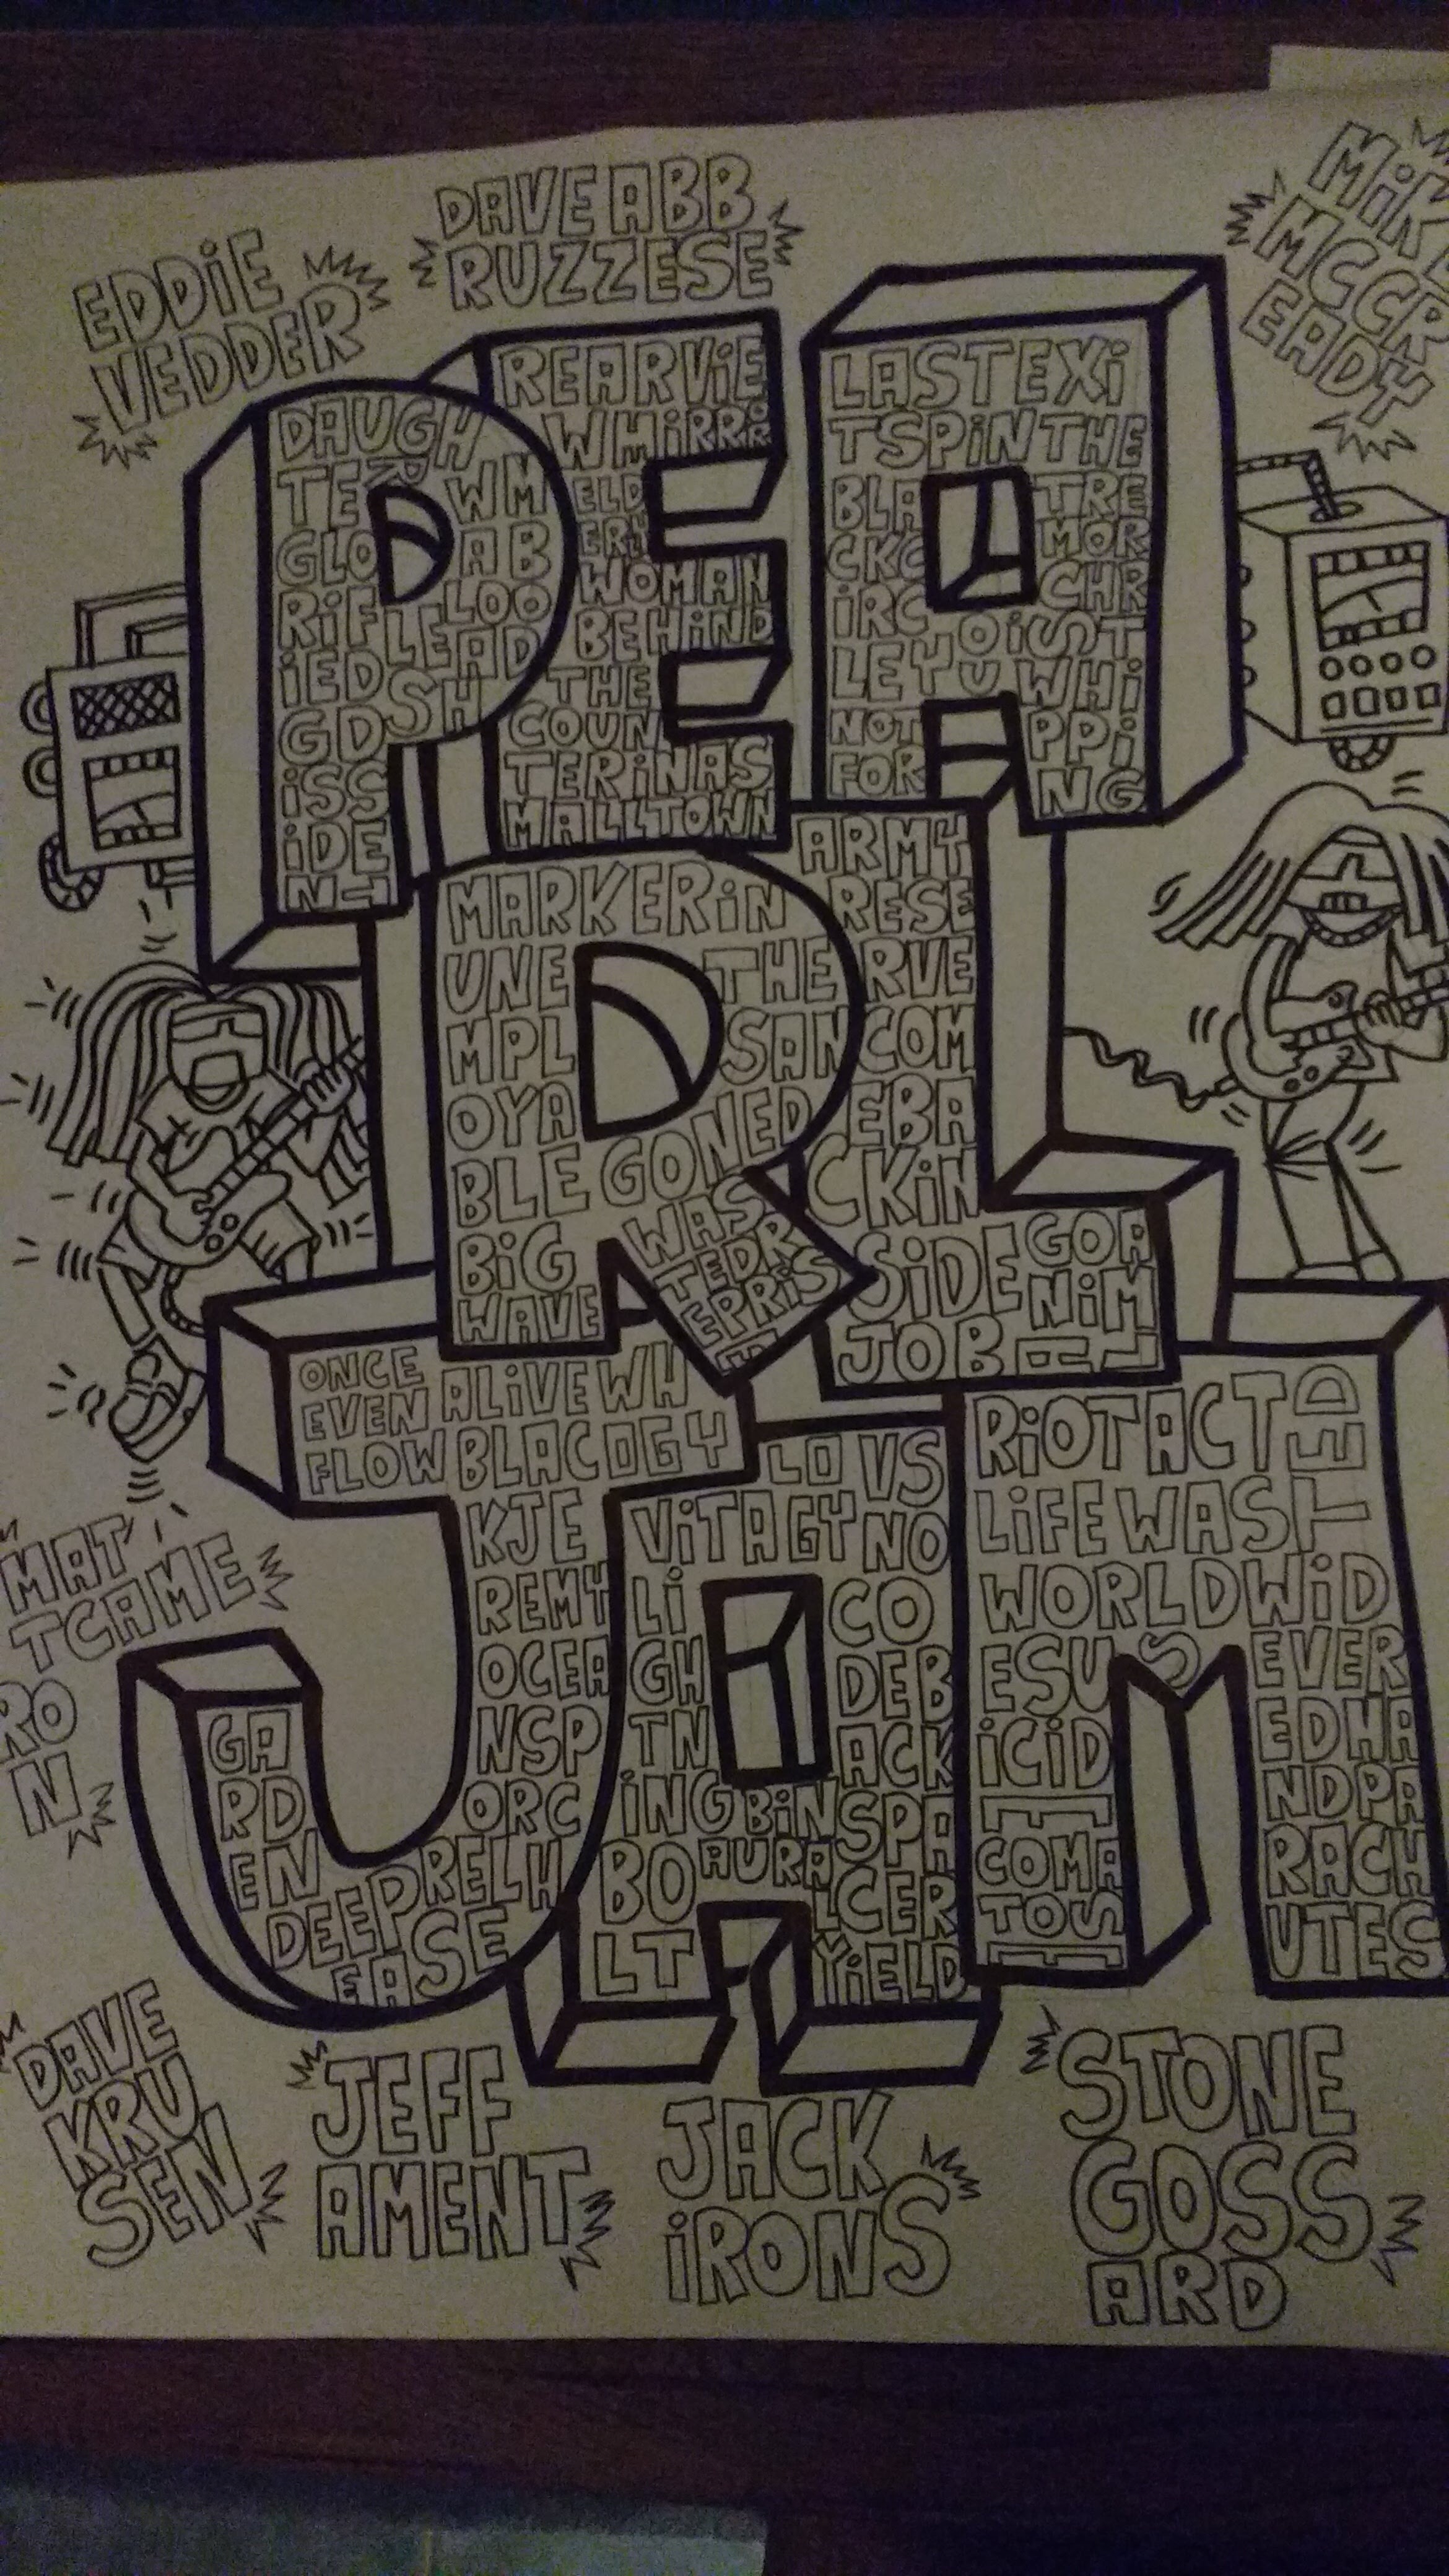 EDDiE
VEDDER
DAVE ABB
RUZZESE
MiK
MCCR
EADY
PEA
DAUGH
TER WM
GLO AB
RiF LOO
iED LEAD
GD SH
iSS
iDE
NT
REARViE
WMiRROR
ELD
ERLY
WOMAN
BEHiND
THE
COUN
TERiNAS
MALLTOWN
LASTEXi
TSPiNTHE
BLA TRE
CKC MOR
iRC CHR
LEYOU iST
NOT WHi
FOR PPi
NG
RL
MARKERiN
UNE THE
MPL SAN
OYA
BLE GONED
BiG WAS
WAVE TEDR
EPRiS
E
ARMY
RESE
RVE
COM
EBA
CKiN
SiDE GOA
NiM
JOB AL
JAM
ONCE
EVEN ALiVE WH
FLOW BLAC OGY
KJE
REMY
OCEA
NSP
ORC
GA
RD
EN
DEEP RELH
EASE
LO VS
ViTAGY NO
Li CO
GH DEB
TN ACK
iNG BiN SPA
BO AURAL CER
LT YiELD
RiOTACT
LiFEWASTED
WORLDWiD
ESUS EVER
iCiD EDHA
E NDPA
COMA RACH
TOS UTES
E
MAT
TCAME
RO
N
DAVE
KRU
SEN
JEFF
AMENT
JACK
iRONS
STONE
GOSS
ARD